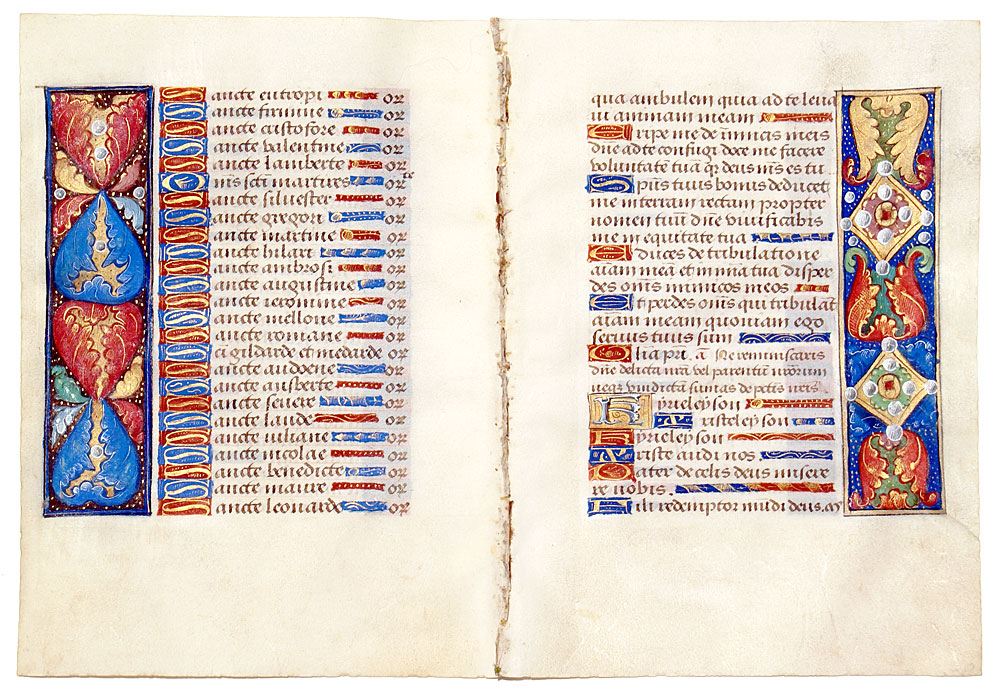 Sancte eutropi or
Sancte firmine or
Sancte cristofore or
Sancte valentine or
Sancte lamberte or
Oms scti martires or
Sancte silvester or
Sancte gregori or
Sancte martine or
Sancte hilari or
Sancte ambrosi or
Sancte augustine or
Sancte ieronime or
Sancte mellone or
Sancte romane or
Sci gildarde et medarde or
Sancte audoene or
Sancte ausberte or
Sancte severe or
Sancte laude or
Sancte iuliane or
Sancte nicolae or
Sancte benedicte or
Sancte maure or
Sancte leonarde or
qua ambulem quia ad te leva
vi animam meam
Eripe me de inimicis meis
dne ad te confugi doce me facere
voluntatē tuā qr deus ms es tu
Spūs tuus bonus deducet
me in terram rectam propter
nomen tuū dne vivificabis
me in equitate tua
Educes de tribulatione
aīam meā et in mīa tua disper
des oms inimicos meos
Et perdes oms qui tribulāt
aīam meam quoniam ego
servus tuus sum
Glia pri. ā Ne reminiscaris
dne delicta nrā vel parentū nrorum
neqz vindictā sumas de
Kyrieleyson
Xpisteleyson
Kyrieleyson
Xriste audi nos
Pater de celis deus misere
re nobis.
Fili redemptor mūdi deus. m